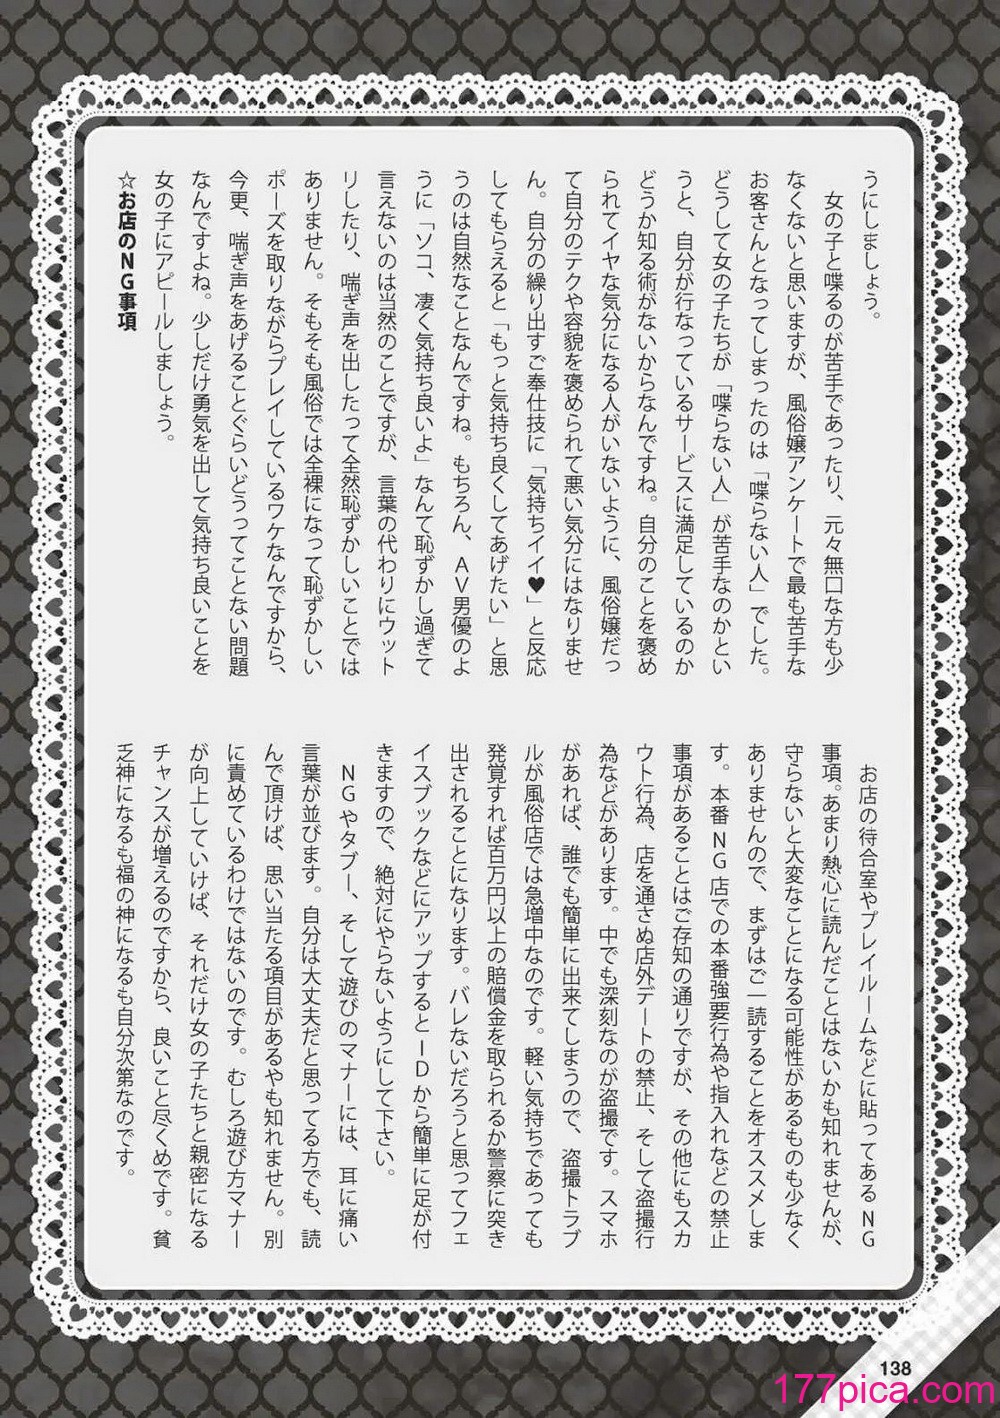 うにしましょう。
　女の子と喋るのが苦手であったり、元々無口な方も少
なくないと思いますが、風俗嬢アンケートで最も苦手な
お客さんとなってしまったのは「喋らない人」でした。
どうして女の子たちが「喋らない人」が苦手なのかとい
うと、自分が行なっているサービスに満足しているのか
どうか知る術がないからなんですね。自分のことを褒め
られてイヤな気分になる人がいないように、風俗嬢だっ
て自分のテクや容貌を褒められて悪い気分にはなりませ
ん。自分の繰り出すご奉仕技に「気持ちイイ♥」と反応
してもらえると「もっと気持ち良くしてあげたい」と思
うのは自然なことなんですね。もちろん、AV男優のよ
うに「ソコ、凄く気持ち良いよ」なんて恥ずかし過ぎて
言えないのは当然のことですが、言葉の代わりにウット
リしたり、喘ぎ声を出したって全然恥ずかしいことでは
ありません。そもそも風俗では全裸になって恥ずかしい
ポーズを取りながらプレイしているワケなんですから、
今更、喘ぎ声をあげることぐらいどうってことない問題
なんですよね。少しだけ勇気を出して気持ち良いことを
女の子にアピールしましょう。
☆お店のNG事項
　お店の待合室やプレイルームなどに貼ってあるNG
事項。あまり熱心に読んだことはないかも知れませんが、
守らないと大変なことになる可能性があるものも少なく
ありませんので、まずはご一読することをオススメしま
す。本番NG店での本番強要行為や指入れなどの禁止
事項があることはご存知の通りですが、その他にもスカ
ウト行為、店を通さぬ店外デートの禁止、そして盗撮行
為などがあります。中でも深刻なのが盗撮です。スマホ
があれば、誰でも簡単に出来てしまうので、盗撮トラブ
ルが風俗店では急増中なのです。軽い気持ちであっても
発覚すれば百万円以上の賠償金を取られるか警察に突き
出されることになります。バレないだろうと思ってフェ
イスブックなどにアップするとIDから簡単に足が付
きますので、絶対にやらないようにして下さい。
　NGやタブー、そして遊びのマナーには、耳に痛い
言葉が並びます。自分は大丈夫だと思ってる方でも、読
んで頂けば、思い当たる項目があるやも知れません。別
に責めているわけではないのです。むしろ遊び方マナー
が向上していけば、それだけ女の子たちと親密になる
チャンスが増えるのですから、良いこと尽くめです。貧
乏神になるも福の神になるも自分次第なのです。
138
177pica.com